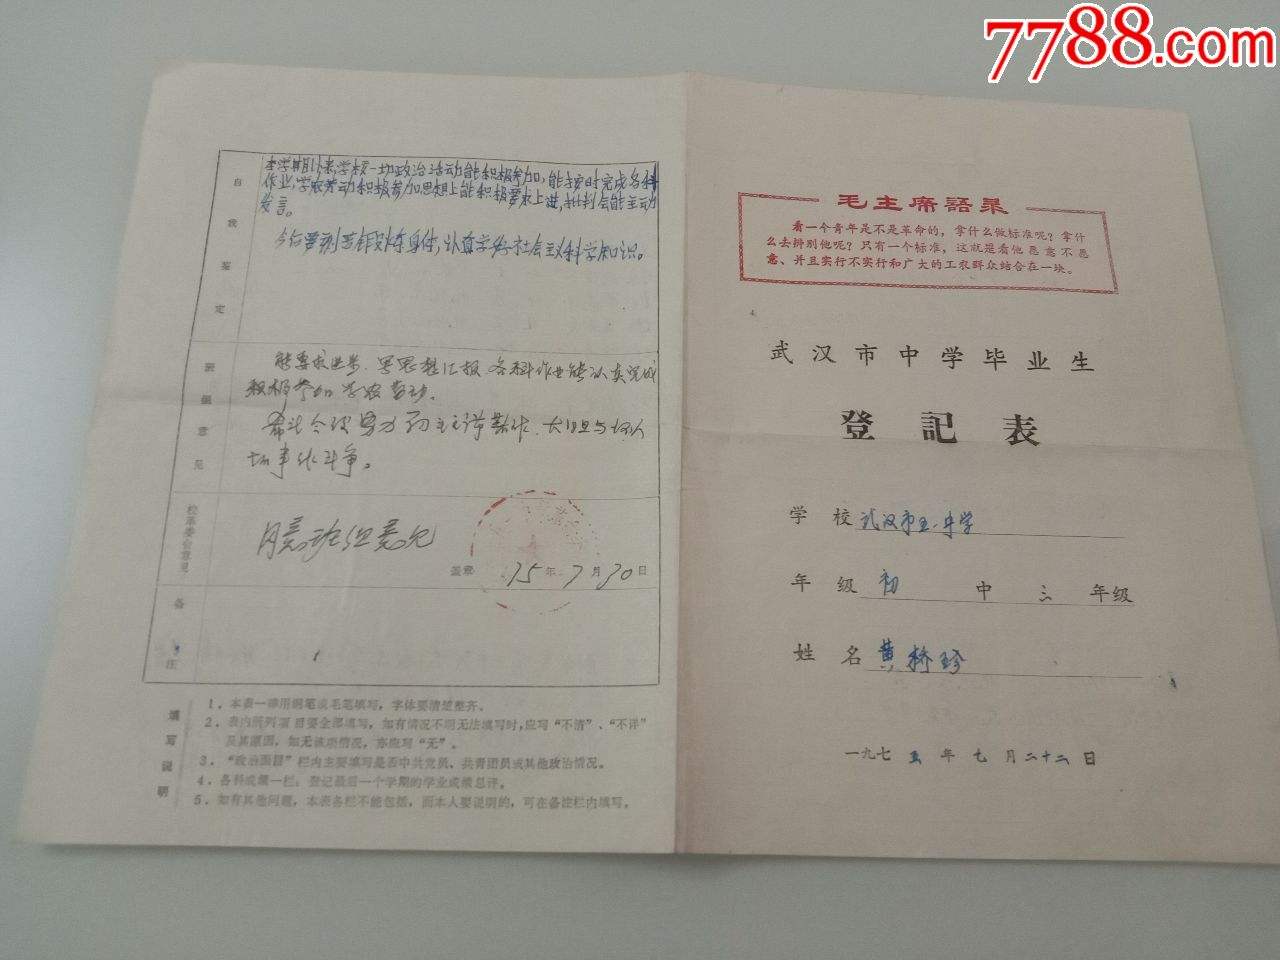 7788.com
自我鉴定
本学期以来学校一切政治活动能积极参加,能按时完成各科
作业,学农劳动积极参加思想上能积极要求上进,批判会能主动
发言。
今后要刻苦锻炼身体,认真学好社会主义科学知识。
班组意见
能要求进步、
思想汇报、各科作业能认真完成
积极参加学农劳动。
坏事作斗争。
校革委会意见
同意班组意见
盖章 75年7月30日
备注
填写说明
1.本表一律用钢笔或毛笔填写,字体要清楚整齐。
2.表内所列项目要全部填写,如有情况不明无法填写时,应写“不清”、“不详”
及其原因,如无该项情况,亦应写“无”。
3.“政治面目”栏内主要填写是否中共党员、共青团员或其他政治情况。
4.各科成绩一栏:登记最后一个学期的学业成绩总评。
5.如有其他问题,本表各栏不能包括,而本人要说明的,可在备注栏内填写。
毛主席語录
看一个青年是不是革命的,拿什么做标准呢?拿什
么去辨别他呢?只有一个标准,这就是看他愿意不愿
意、并且实行不实行和广大的工农群众结合在一块。
武汉市中学毕业生
登記表
学校 武汉市五一中学
年级 初中三年级
姓名 黄桥珍
一九七五年七月二十二日